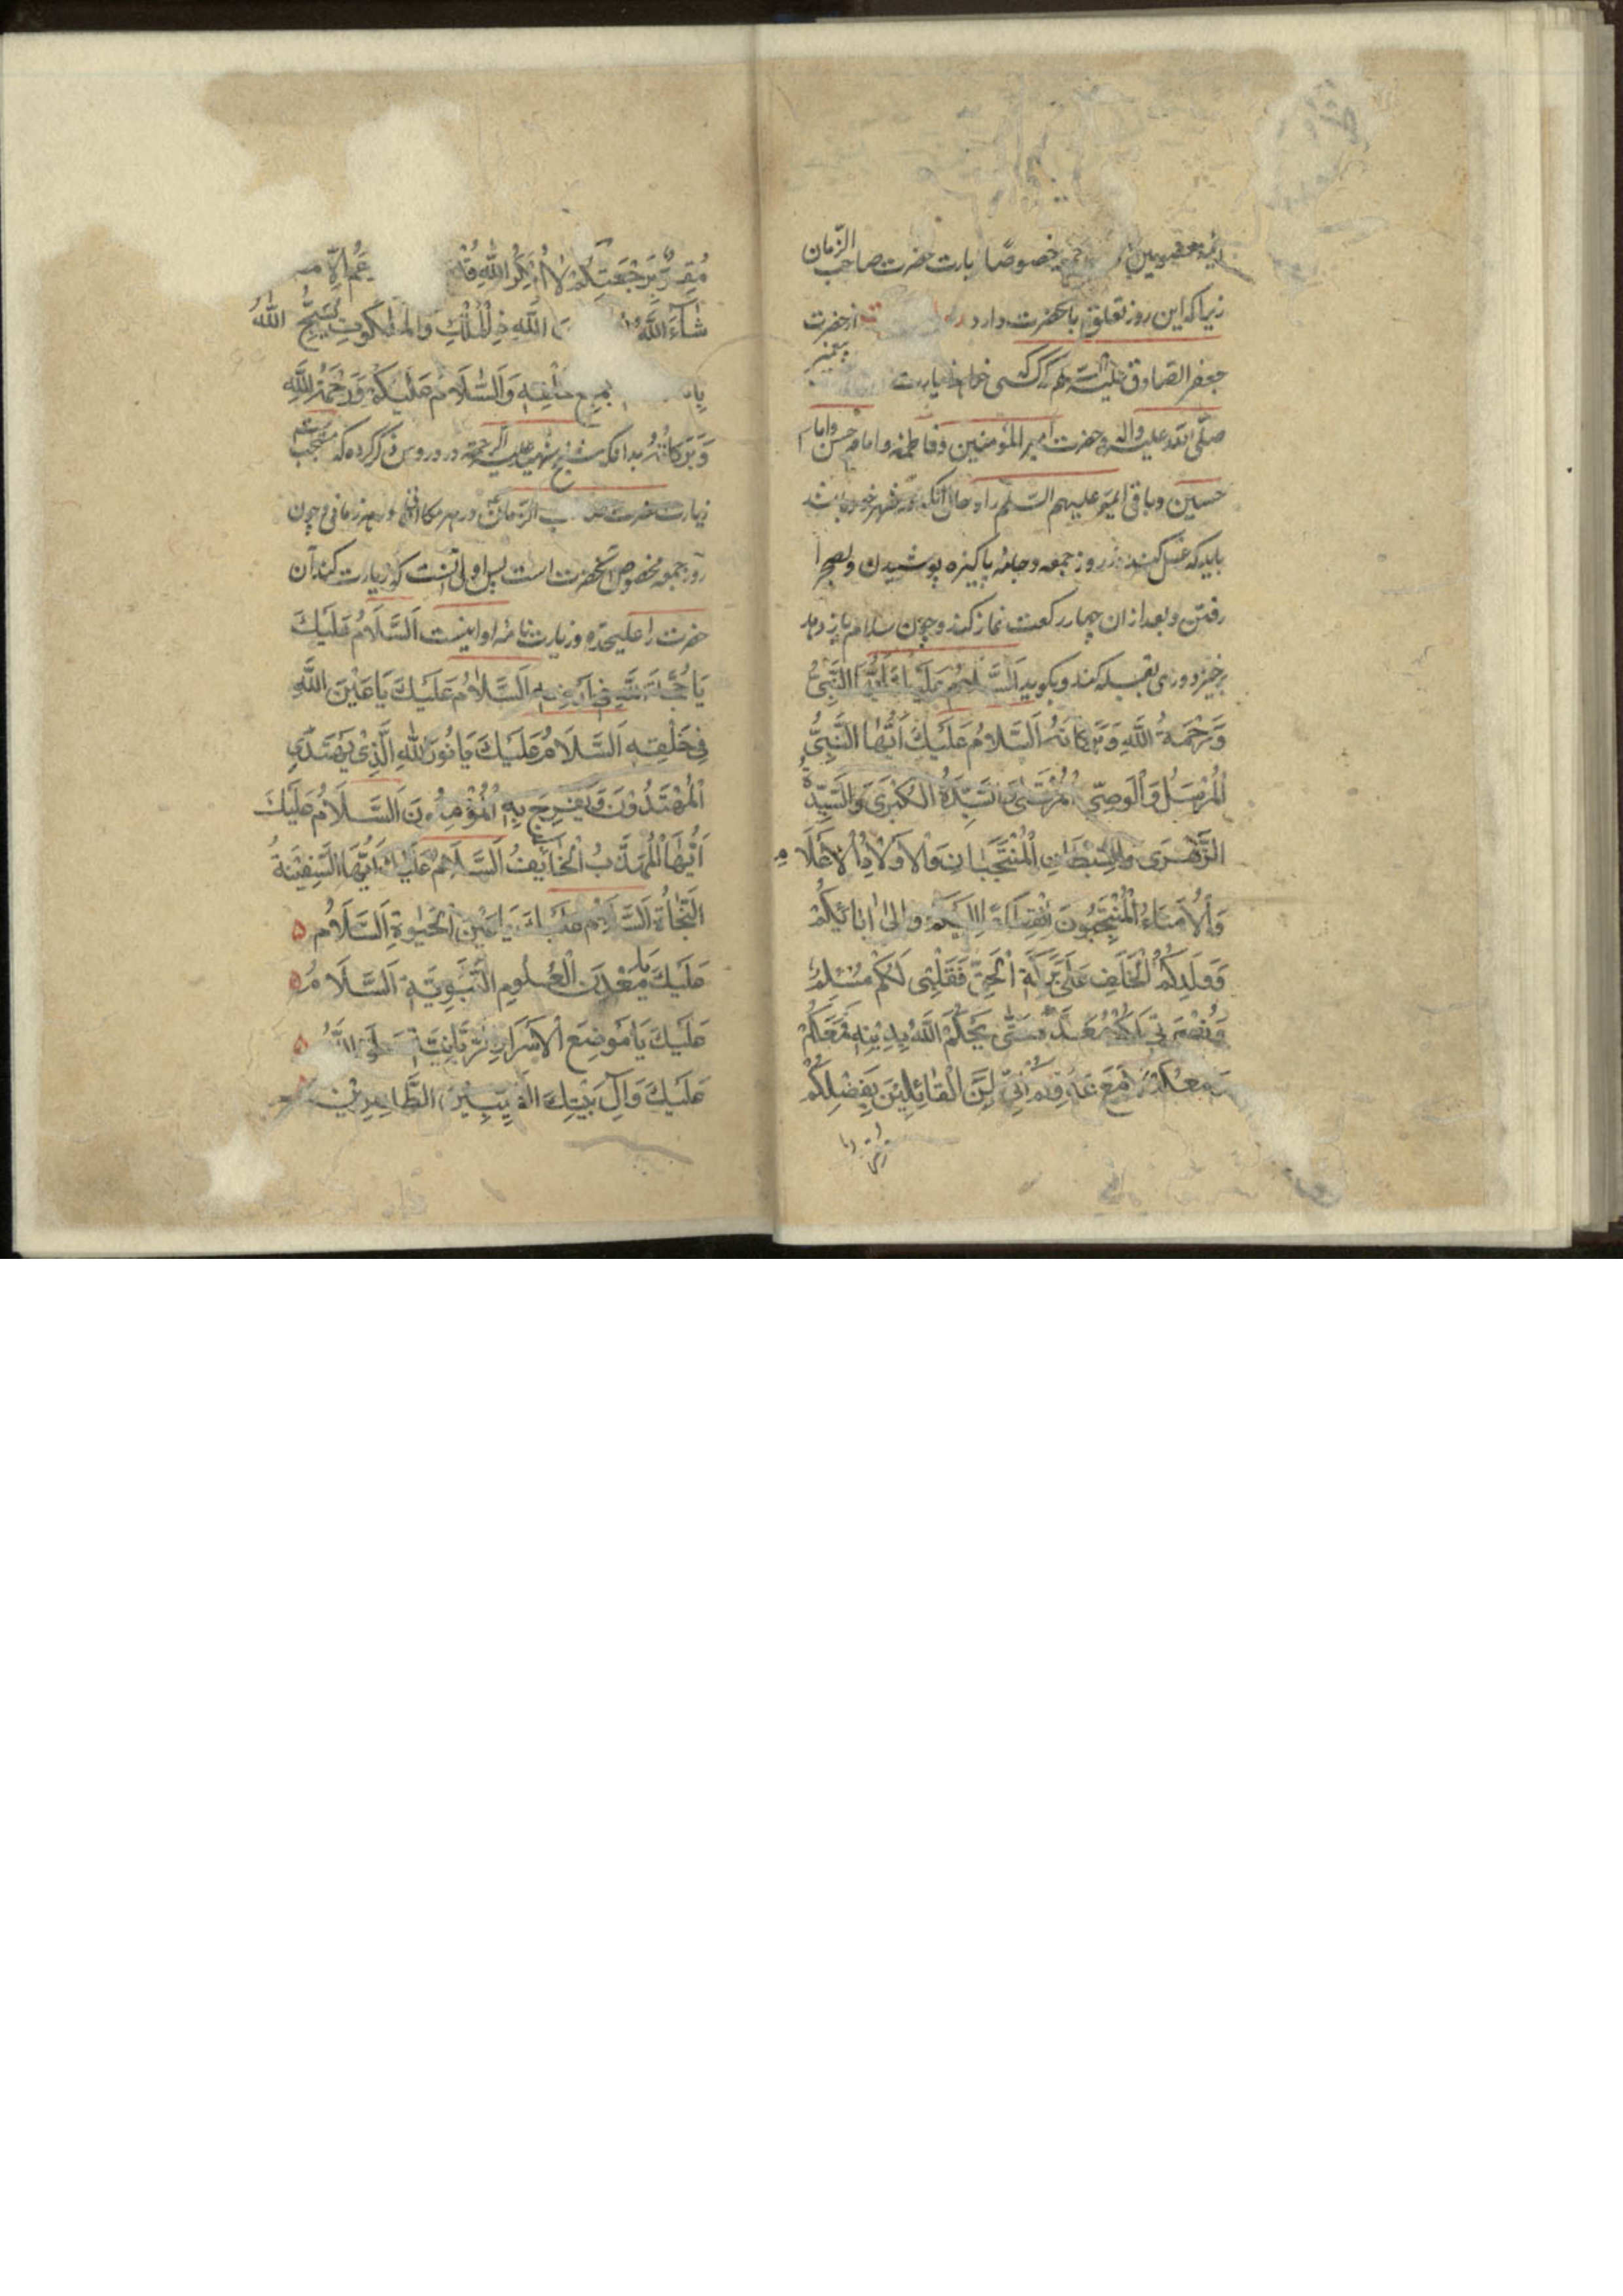 ائمه معصومین خصوصًا زیارت حضرت صاحب الزّمان
زیرا که این روز تعلق بآنحضرت دارد از حضرت
جعفر الصادق علیه السّلم که هر کسی خواهد زیارت پیغمبر
صلّی الله علیه واله و حضرت امیر المؤمنین و فاطمه و امام حسن وامام
حسین وباقی ایمه علیهم السّلم را و حال آنکه در شهر خود باشد
باید که غسل کند در روز جمعه و جامهٔ پاکیزه پوشیدن و بصحرا
رفتن و بعد از ان چهار رکعت نماز کند و چون سلام باز دهد
برخیزد و روی بقبله کند و بکوید اَلسَّلامُ عَلَیْكَ اَیُّهَا النَّبِیُّ
وَرَحْمَةُ اللّٰهِ وَبَرَكَاتُهُ اَلسَّلامُ عَلَیْكَ اَیُّهَا النَّبِیُّ
الْمُرْسَلُ وَالْوَصِیُّ الْمُرْتَضٰی وَالسَّیِّدَةُ الْكُبْرَی وَالسَّیِّدَةُ
الزَّهْرَی وَالسِّبْطَانِ الْمُنْتَجَبَانِ وَالْاَوْلَادُ الْاَعْلَامِ
وَالْاُمَنَاءُ الْمُنْتَجَبُونَ اِنْقِطَاعًا اِلَیْكُمْ وَاِلٰی اٰبَائِكُمْ
وَوَلَدِكُمُ الْخَلَفِ عَلَی بَرَكَةِ الْحَقِّ فَقَلْبِی لَكُمْ مُسَلِّمٌ
وَنُصْرَتِی لَكُمْ مُعَدَّةٌ حَتّٰی یَحْكُمَ اللّٰهُ بِدِیْنِهِ فَمَعَكُمْ
مَعَكُمْ لَا مَعَ عَدُوِّكُمْ اِنِّی لَمِنَ الْقَائِلِیْنَ بِفَضْلِكُمْ
مُقِرٌّ بِرَجْعَتِكُمْ لَا اُنْكِرُ لِلّٰهِ قُدْرَةً اَزْعُمُ اِلَّا مَا
شَاۤءَ اللّٰهُ اللّٰهِ ذِی الْمُلْكِ وَالْمَلَكُوتِ یُسَبِّحُ اللّٰهَ
جَمِیعُ خَلْقِهِ وَالسَّلَامُ عَلَیْكُمْ وَرَحْمَةُ اللّٰهِ
وَبَرَكَاتُهُ بدانکه شیخ شهید علیه الرحمة در دروس ذکر کرده که مستحب
زیارت حضرت صاحب الزمان در هر مکانی و در هر زمانی و چون
روز جمعه مخصوص آنحضرت است پس اولی آنست که زیارت کند آن
حضرت را علیحده و زیارت نامهٔ او اینست اَلسَّلَامُ عَلَیْكَ
یَا حُجَّةَ اللّٰهِ فِی اَرْضِهِ اَلسَّلَامُ عَلَیْكَ یَا عَیْنَ اللّٰهِ
فِی خَلْقِهِ اَلسَّلَامُ عَلَیْكَ یَا نُورَ اللّٰهِ الَّذِیْ یَهْتَدِی بِهِ
الْمُهْتَدُوْنَ وَیُفَرَّجُ بِهِ الْمُؤْمِنُونَ اَلسَّلَامُ عَلَیْكَ
اَیُّهَا الْمُهَذَّبُ الْخَایِفُ اَلسَّلَامُ عَلَیْكَ اَیُّهَا السَّفِیْنَةُ
النَّجَاةِ اَلسَّلَامُ عَلَیْكَ یَا عَیْنَ الْحَیٰوةِ اَلسَّلَامُ ۵
عَلَیْكَ یَا مَعْدِنَ الْعُلُومِ النَّبَوِیَّةِ اَلسَّلَامُ ۵
عَلَیْكَ یَا مَوْضِعَ الْاَسْرَارِ الرَّبَّانِیَّةِ صَلَّی اللّٰهُ ۵
عَلَیْكَ وَاٰلِ بَیْتِكَ الطَّیِّبِیْنَ الطَّاهِرِیْنَ